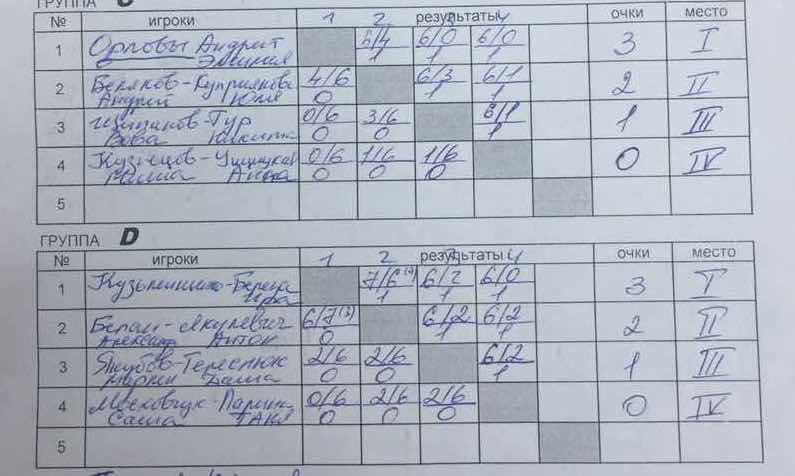 ГРУППА C
№ игроки 1 2 результаты 4 очки место
1 Орловы Андрей 6/4 6/0 6/0 3 I
1 1 1
2 Беляков-Куприянова 4/6 6/3 6/1 2 II
Андрей Юля 0 1 1
3 Тур 0/6 3/6 6/1 1 III
Вова Никита 0 0 1
4 Кузнецов- 0/6 1/6 1/6 0 IV
Миша Анна 0 0 0
5
ГРУППА D
№ игроки 1 2 результаты 4 очки место
1 7/6 6/2 6/0 3 I
Ира 1 1 1
2 Белаш-Якулевич 6/7 6/2 6/2 2 II
Александр Антон 0 1 1
3 Якубов-Тереспюк 2/6 2/6 6/2 1 III
Даша 0 0 1
4 0/6 2/6 2/6 0 IV
Саша 0 0 0
5